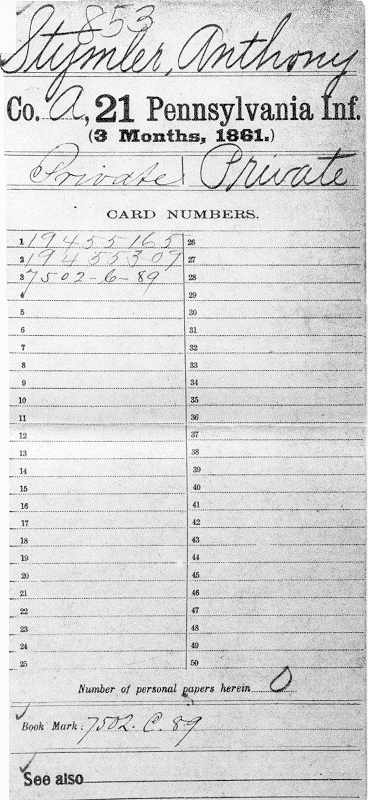 853
Stymler, Anthony
Co. A, 21 Pennsylvania Inf.
(3 Months, 1861.)
Private | Private
CARD NUMBERS.
1 19455165 26
2 19455307 27
3 7502-6-89 28
4 29
5 30
6 31
7 32
8 33
9 34
10 35
11 36
12 37
13 38
14 39
15 40
16 41
17 42
18 43
19 44
20 45
21 46
22 47
23 48
24 49
25 50
Number of personal papers herein 0
Book Mark: 7502. C. 89
See also